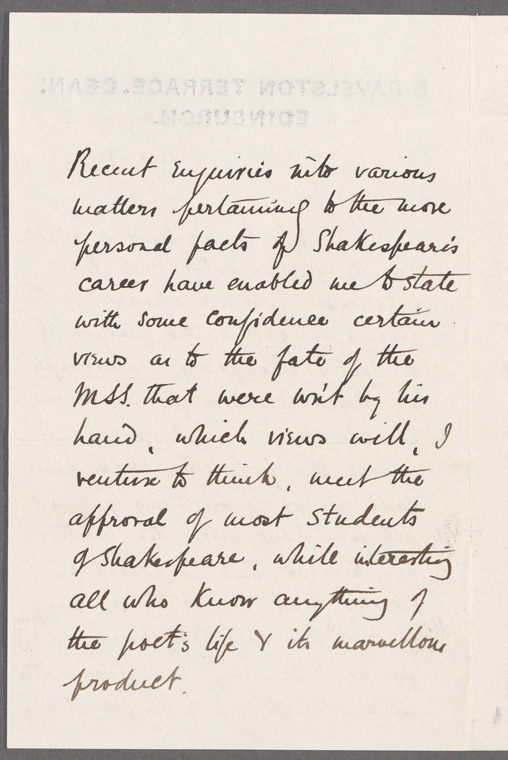 5 RAVELSTON TERRACE. DEAN:
EDINBURGH.
Recent Enquiries into various
matters pertaining to the more
personal facts of Shakespeare's
career have enabled me to state
with some confidence certain
views as to the fate of the
MSS. that were writ by his
hand, which views will, I
venture to think, meet the
approval of most Students
of Shakespeare, while interesting
all who know anything of
the poet's life & its marvellous
product.